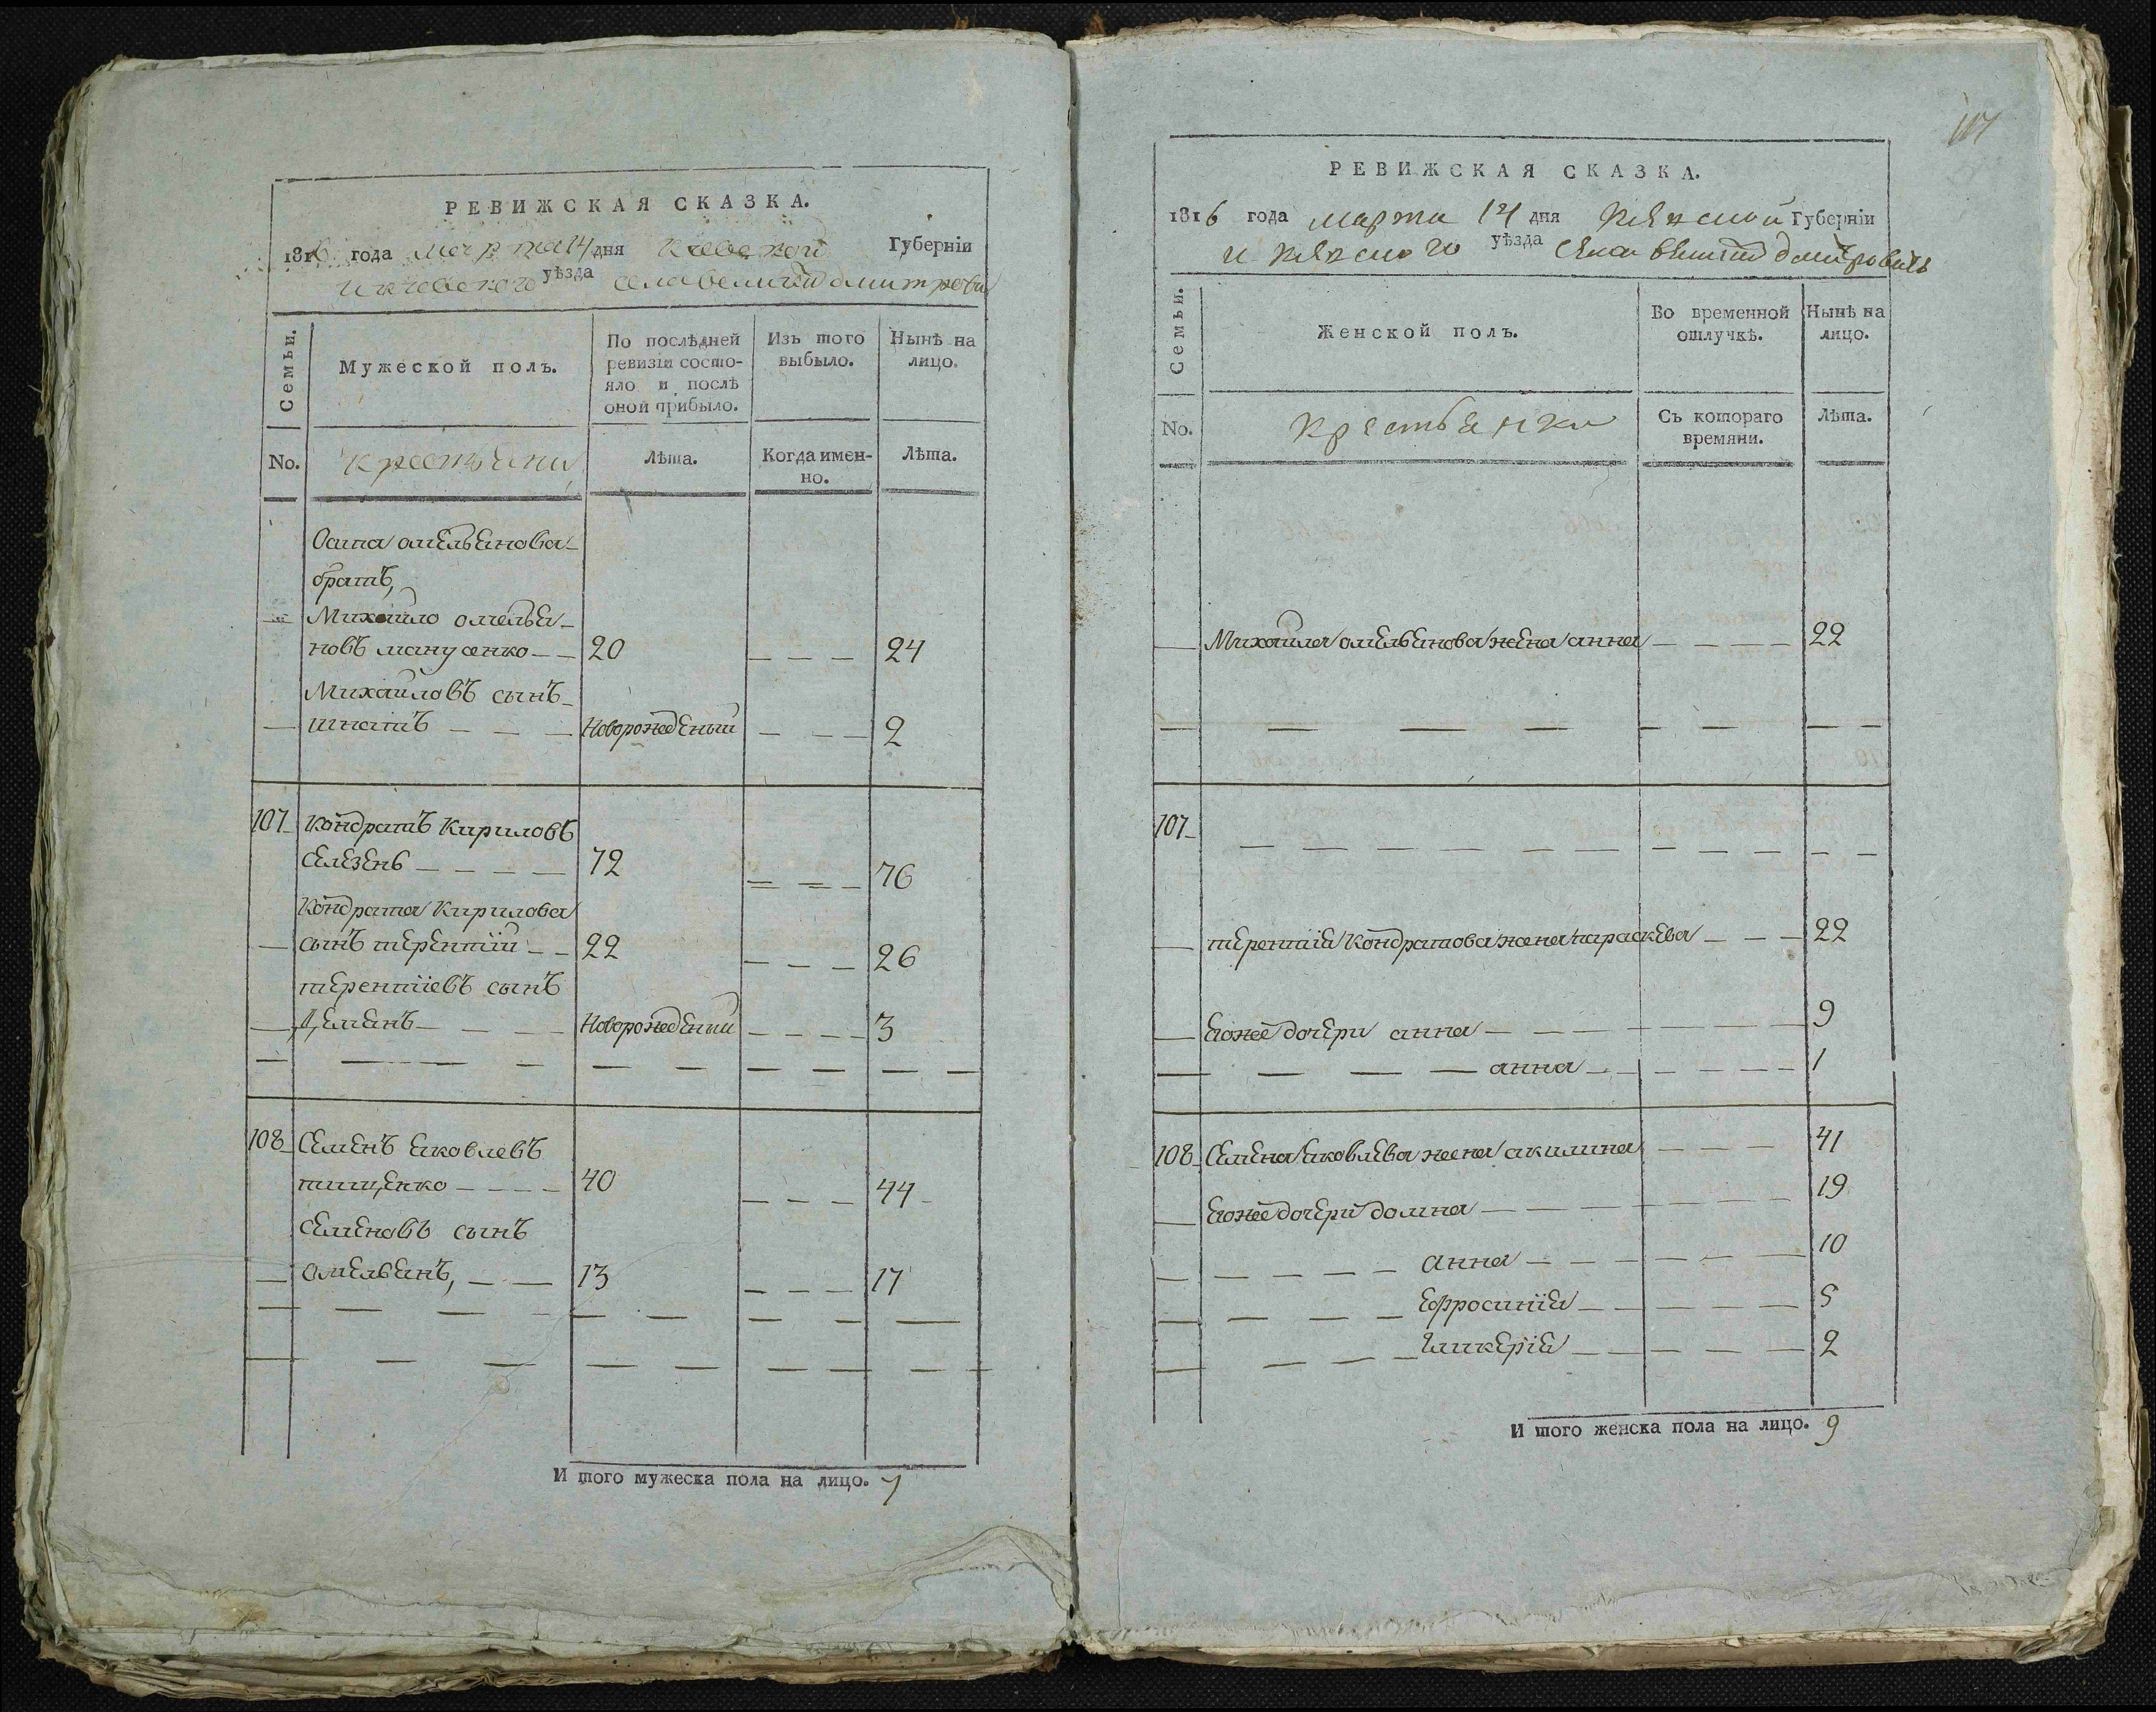 РЕВИЖСКАЯ СКАЗКА.
1816 года марта 14 дня Киевской Губернїи
и киевского уѣзда села великий дмитрович
Семьи.
Мужеской полъ.
По послѣдней ревизїи состояло и послѣ оной прибыло.
Изъ того выбыло.
Нынѣ на лицо.
No.
Крестьяни
Лѣта.
Когда именно.
Лѣта.
Осипа омельянова
братъ,
Михайло омелья-
новъ манусенко 20 24
Михайловъ сынъ
игнатъ Новорожденый 2
107 Кондратъ Кириловъ
Селезень 72 76
Кондрата Кирилова
сынъ терентїй 22 26
терентїевъ сынъ
Демянъ Новорожденый 3
108 Семенъ яковлевъ
тищенко 40 44
Семеновъ сынъ
омельянъ, 13 17
И того мужеска пола на лицо. 7
117
РЕВИЖСКАЯ СКАЗКА.
1816 года марта 14 дня Киевской Губернїи
и киевского уѣзда села великий дмитрович
Семьи.
Женской полъ.
Во временной отлучкѣ.
Нынѣ на лицо.
No.
Крестьянки
Съ котораго времяни.
Лѣта.
Михайла омельянова жена анна 22
107
терентїя Кондратова жена параскева 22
Еюже дочери анна 9
анна 1
108 Семена яковлева жена акилина 41
Еюже дочери домна 19
анна 10
Ефросинїя 5
Гликерїя 2
И того женска пола на лицо. 9